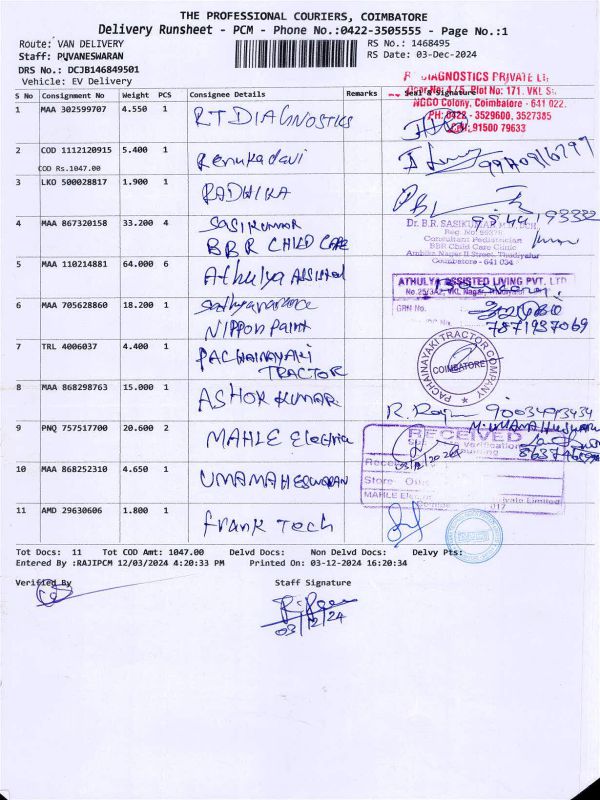 THE PROFESSIONAL COURIERS, COIMBATORE
Delivery Runsheet - PCM - Phone No.:0422-3505555 - Page No.:1
Route: VAN DELIVERY
RS No.: 1468495
Staff: PUVANESWARAN
RS Date: 03-Dec-2024
DRS No.: DCJB146849501
Vehicle: EV Delivery
S No Consignment No Weight PCS Consignee Details Remarks Seal & Signature
DIAGNOSTICS PRIVATE
Plot No: 171. VKL
NGGO Colony, Coimbatore - 641 022.
PH: 0422 - 3529600, 3527385
91500 79633
1 MAA 302599707 4.550 1 RT DIAGNOSTICS
2 COD 1112120915 5.400 1 Renukadavi
COD Rs.1047.00
3 LKO 500028817 1.900 1 RADHIKA
4 MAA 867320158 33.200 4 SASIKUMAR
BBR CHILD CARE
Dr. B.R. SASIKUMAR
Reg. No.
Consultant Pediatrician
BBR Child Care Clinic
Ambika Nagar II Street, Thudiyalur
Coimbatore - 641 034
5 MAA 110214881 64.000 6 Athulya ASSISTED
ATHULYA ASSISTED LIVING PVT. LTD
No.25/3A2, VKL Nagar,
GRN No.
7871937069
6 MAA 705628860 18.200 1 Sathyanarayana
NIPPON Paint
7 TRL 4006037 4.400 1 PACHAINAYAKI
TRACTOR
PACHAINAYAKI TRACTOR COMPANY
COIMBATORE
8 MAA 868298763 15.000 1 ASHOK KUMAR
R. 9003493434
9 PNQ 757517700 20.600 2 MAHLE Electric
RECEIVED
Verification
Store
MAHLE Private Limited
10 MAA 868252310 4.650 1 UMAMAHESWARAN
11 AMD 29630606 1.800 1 frank Tech
Tot Docs: 11 Tot COD Amt: 1047.00 Delvd Docs: Non Delvd Docs: Delvy Pts:
Entered By :RAJIPCM 12/03/2024 4:20:33 PM Printed On: 03-12-2024 16:20:34
Verified By
Staff Signature
03/12/24